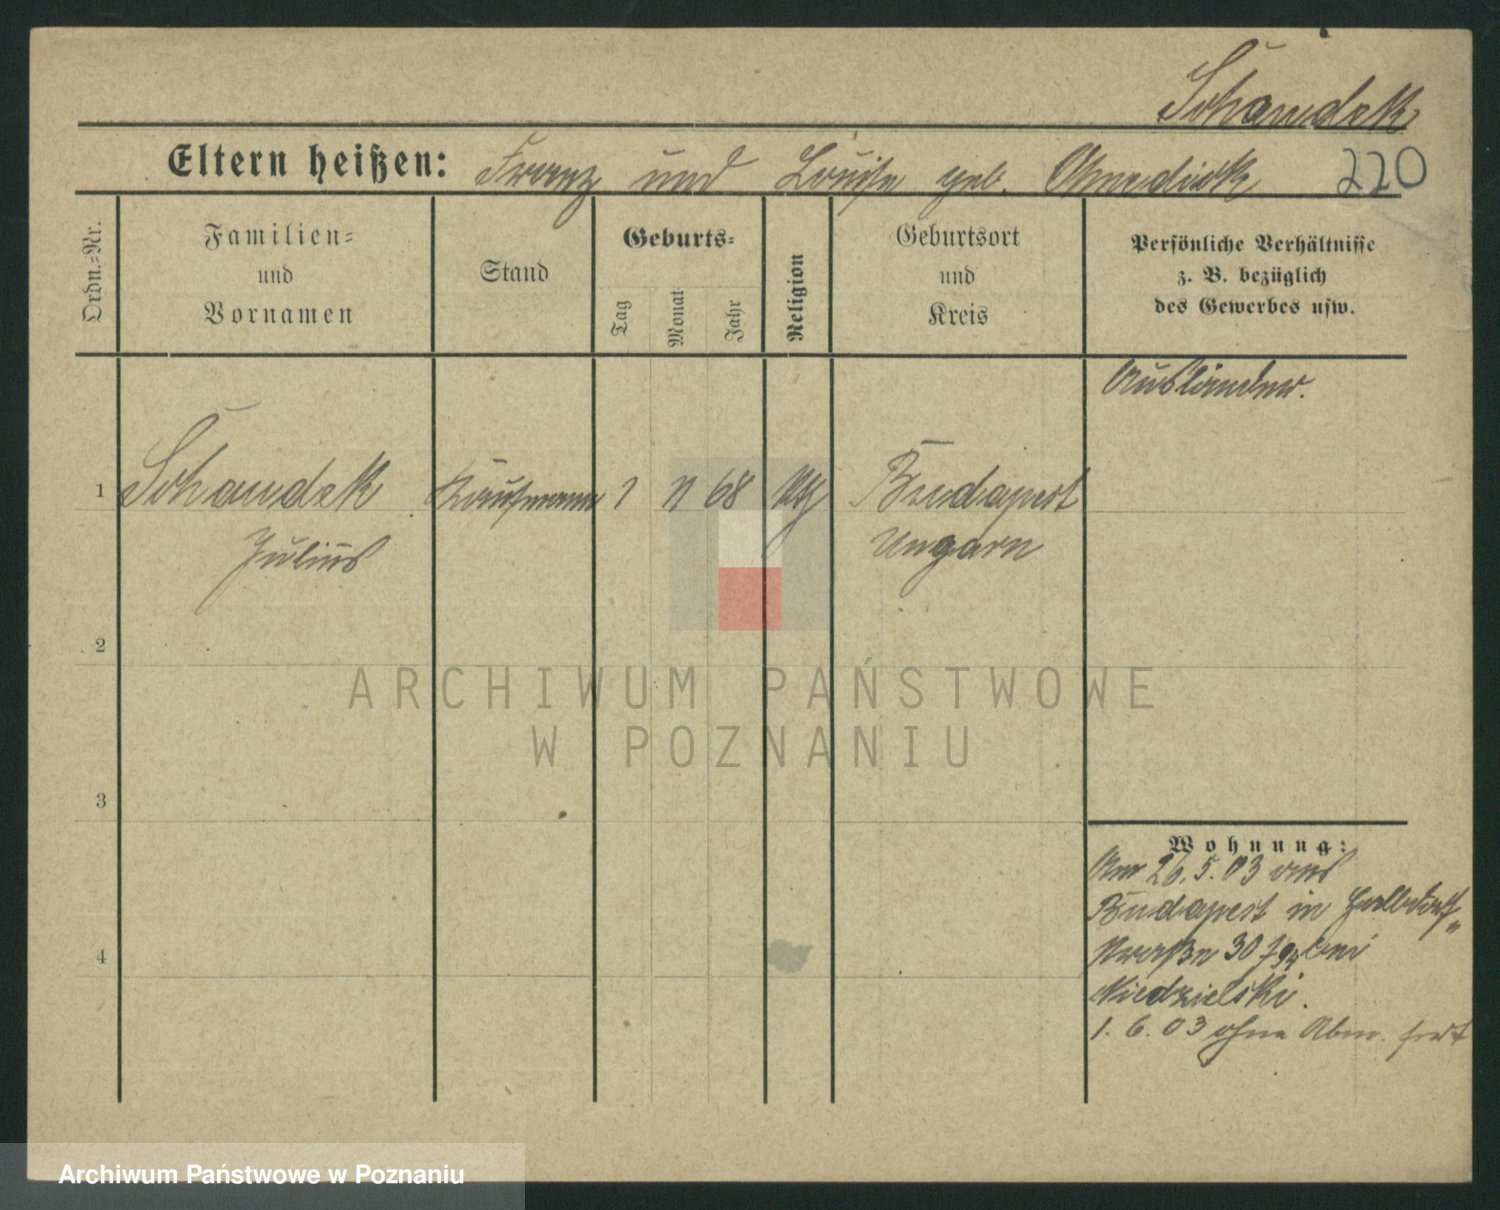 Schaudek
Eltern heißen: Franz und Louise geb.
220
Ordn.-Nr.
Familien-
und
Vornamen
Stand
Geburts-
Tag
Monat
Jahr
Religion
Geburtsort
und
Kreis
Persönliche Verhältnisse
z. B. bezüglich
des Gewerbes usw.
Ausländer.
1 Schaudek Kaufmann 1 11 68 Budapest
Julius Ungarn
2
ARCHIWUM PAŃSTWOWE
W POZNANIU
3
Wohnung:
Am 26.5.03 aus
Budapest in
straße 30 bei
Niedzielski.
1.6.03 ohne Abm. fort
4
Archiwum Państwowe w Poznaniu